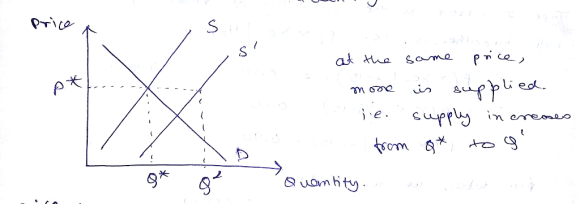 Price
S
S'
at the same price,
P*
more is supplied.
i.e. supply increases
from Q* to Q'
D
Q*
Q'
Quantity.